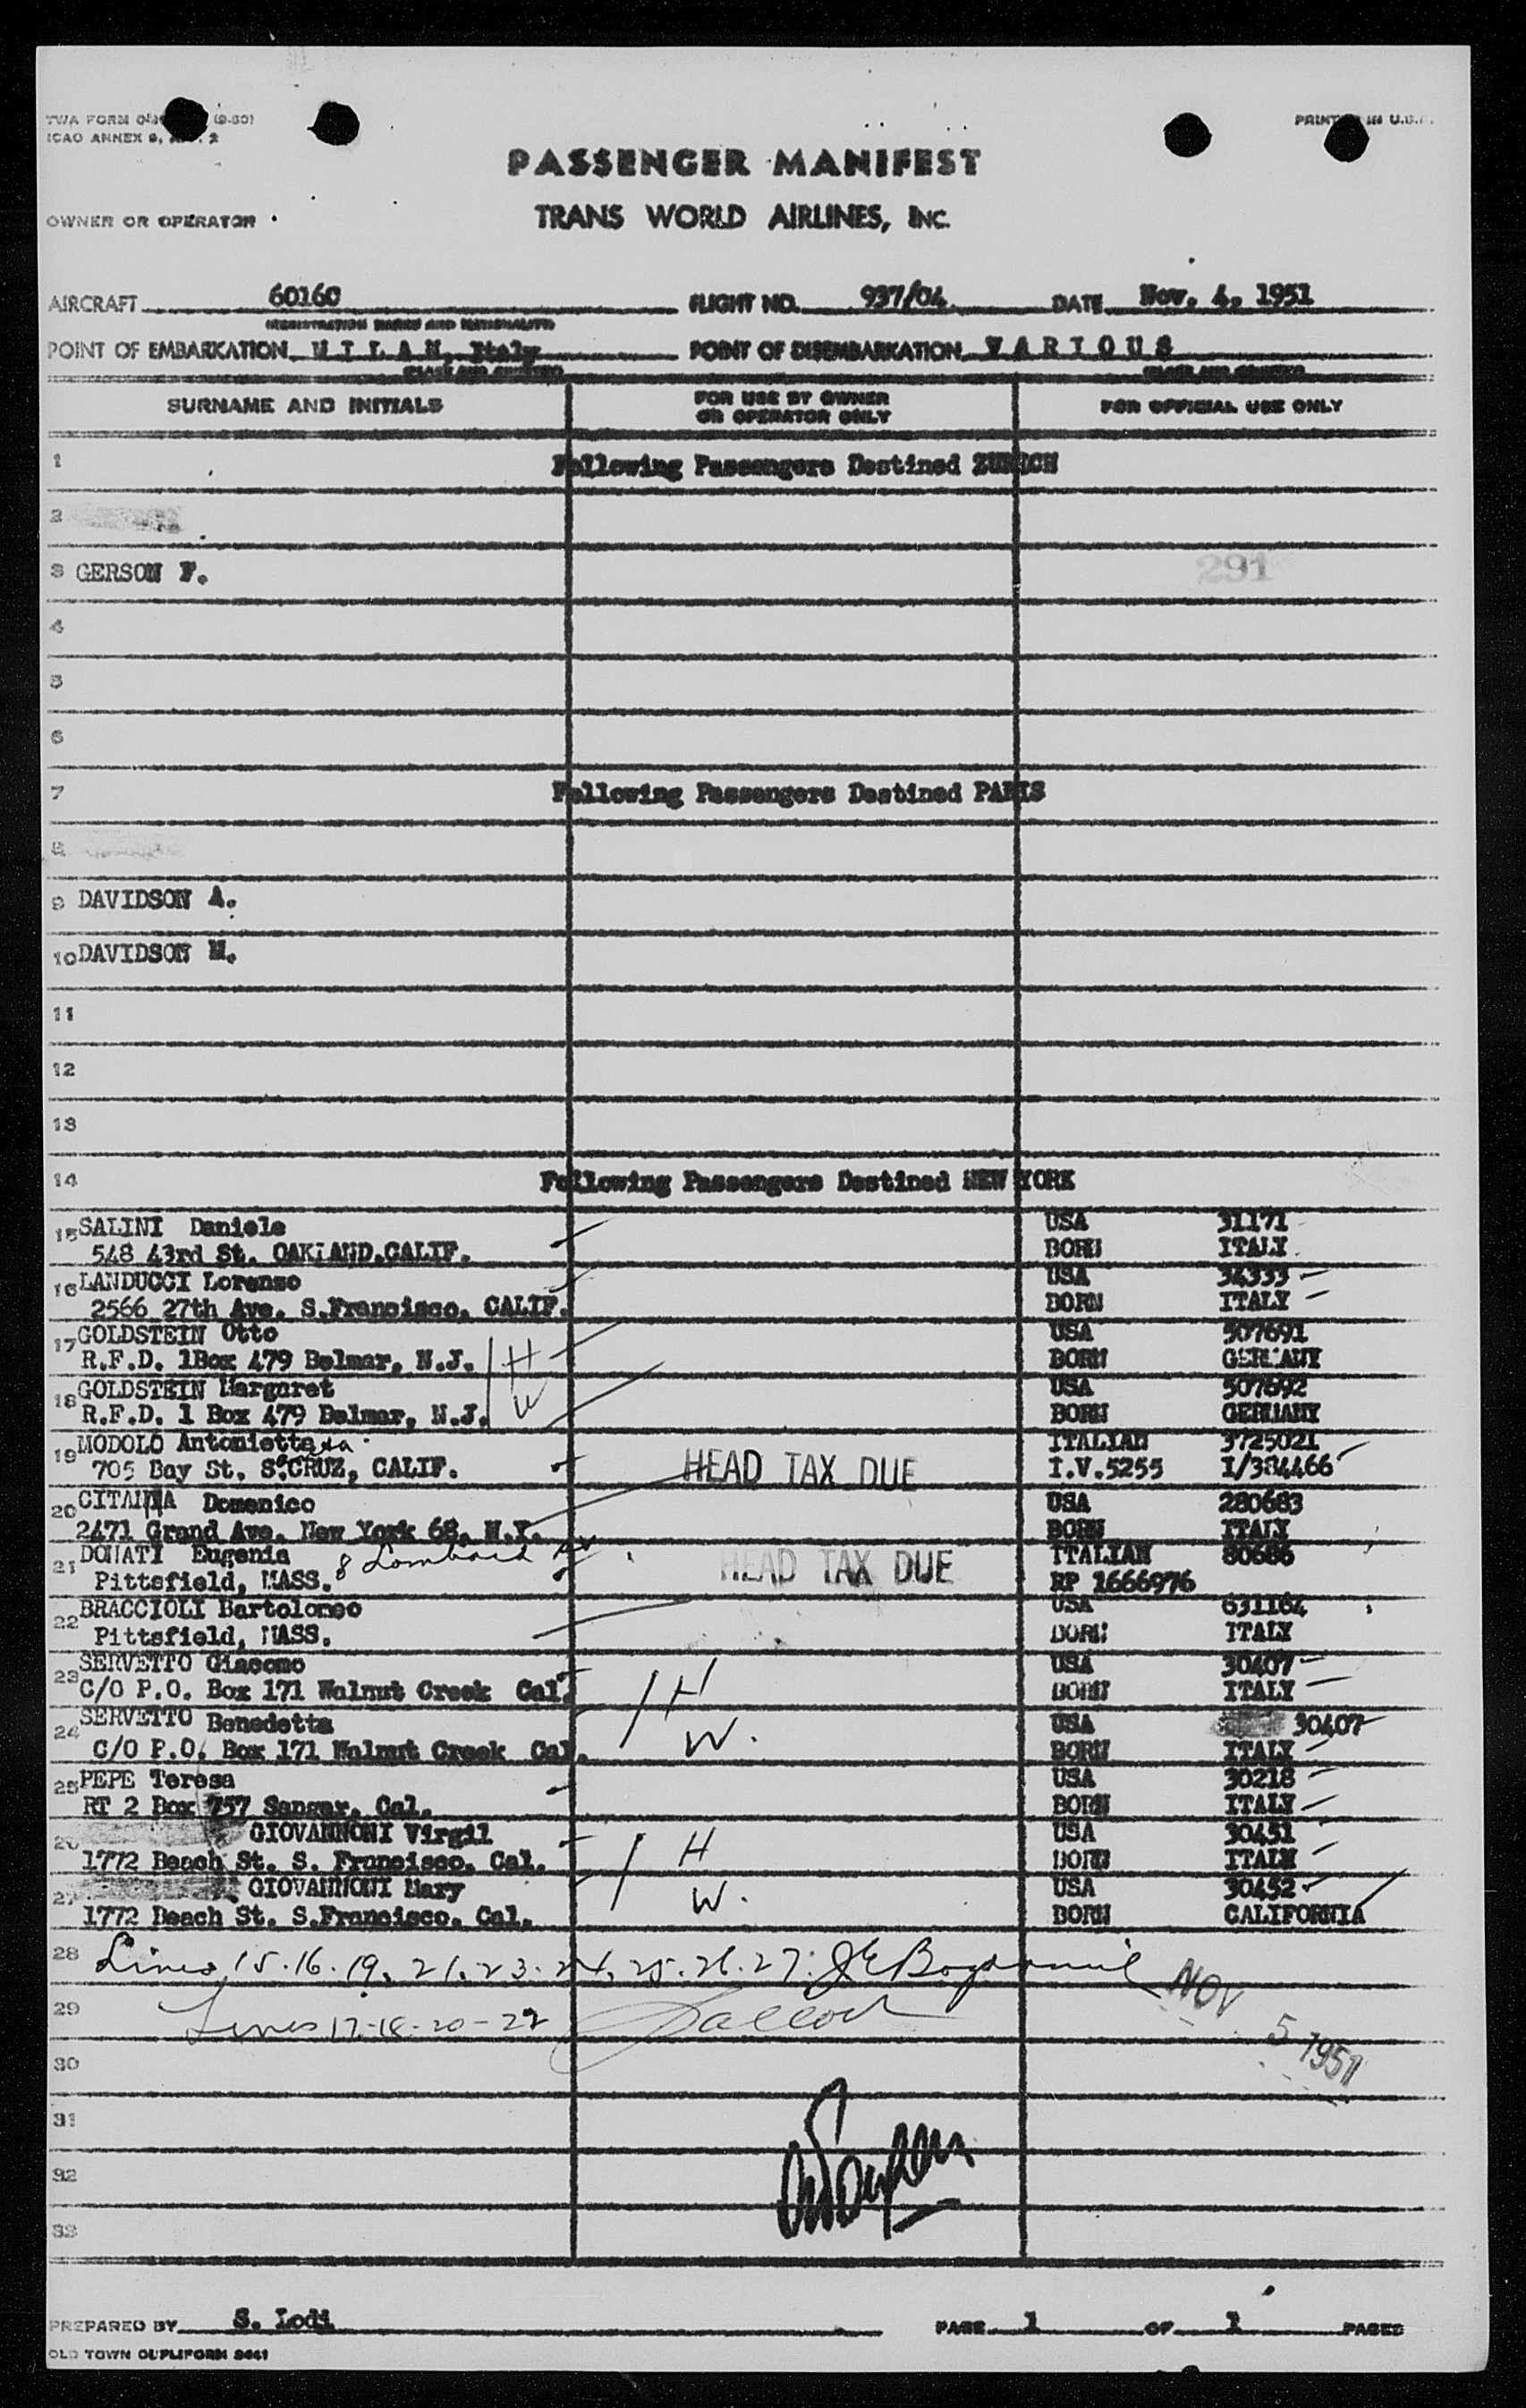 TWA FORM (9-50)
PRINTED IN U.S.A.
ICAO ANNEX 9, 2
PASSENGER MANIFEST
OWNER OR OPERATOR
TRANS WORLD AIRLINES, INC.
AIRCRAFT 60160 FLIGHT NO. 937/04 DATE Nov. 4, 1951
REGISTRATION MARKS AND NATIONALITY
POINT OF EMBARKATION MILAN, Italy POINT OF DISEMBARKATION VARIOUS
PLACE AND COUNTRY PLACE AND COUNTRY
SURNAME AND INITIALS FOR USE BY OWNER OR OPERATOR ONLY FOR OFFICIAL USE ONLY
1 Following Passengers Destined ZURICH
2
3 GERSON F. 291
4
5
6
7 Following Passengers Destined PARIS
8
9 DAVIDSON A.
10 DAVIDSON M.
11
12
13
14 Following Passengers Destined NEW YORK
15 SALINI Daniele USA 31171
548 43rd St. OAKLAND.CALIF. BORN ITALY
16 LANDUCCI Lorenzo USA 34333
2566 27th Ave. S.Francisco. CALIF. BORN ITALY
17 GOLDSTEIN Otto USA 507691
R.F.D. 1Box 479 Belmar, N.J. H BORN GERMANY
18 GOLDSTEIN Margaret USA 507692
R.F.D. 1 Box 479 Belmar, N.J. W BORN GERMANY
19 MODOLO Antonietta ITALIAN 3725021
705 Bay St. S.CRUZ, CALIF. HEAD TAX DUE I.V.5255 I/384466
20 CITANNA Domenico USA 280683
2471 Grand Ave. New York 68. N.Y. BORN ITALY
21 DONATI Eugenia 8 Lombard ITALIAN 80686
Pittsfield, MASS. HEAD TAX DUE RP 1666976
22 BRACCIOLI Bartolomeo USA 631164
Pittsfield, MASS. BORN ITALY
23 SERVETTO Giacomo USA 30407
C/O P.O. Box 171 Walnut Creek Cal. H BORN ITALY
24 SERVETTO Benedetta USA 30407
C/O P.O. Box 171 Walnut Creek Cal. W. BORN ITALY
25 PEPE Teresa USA 30218
RT 2 Box 757 Sanger. Cal. BORN ITALY
26 GIOVANNONI Virgil USA 30451
1772 Beach St. S. Francisco. Cal. H BORN ITALY
27 GIOVANNONI Mary USA 30452
1772 Beach St. S.Francisco. Cal. W. BORN CALIFORNIA
28 Lines 15.16.19.21.23.24.25.26.27:
NOV 5 1951
29 Lines 17-18-20-22
30
31
32
33
PREPARED BY S. Lodi PAGE 1 OF 1 PAGES
OLD TOWN DUPLIFORM